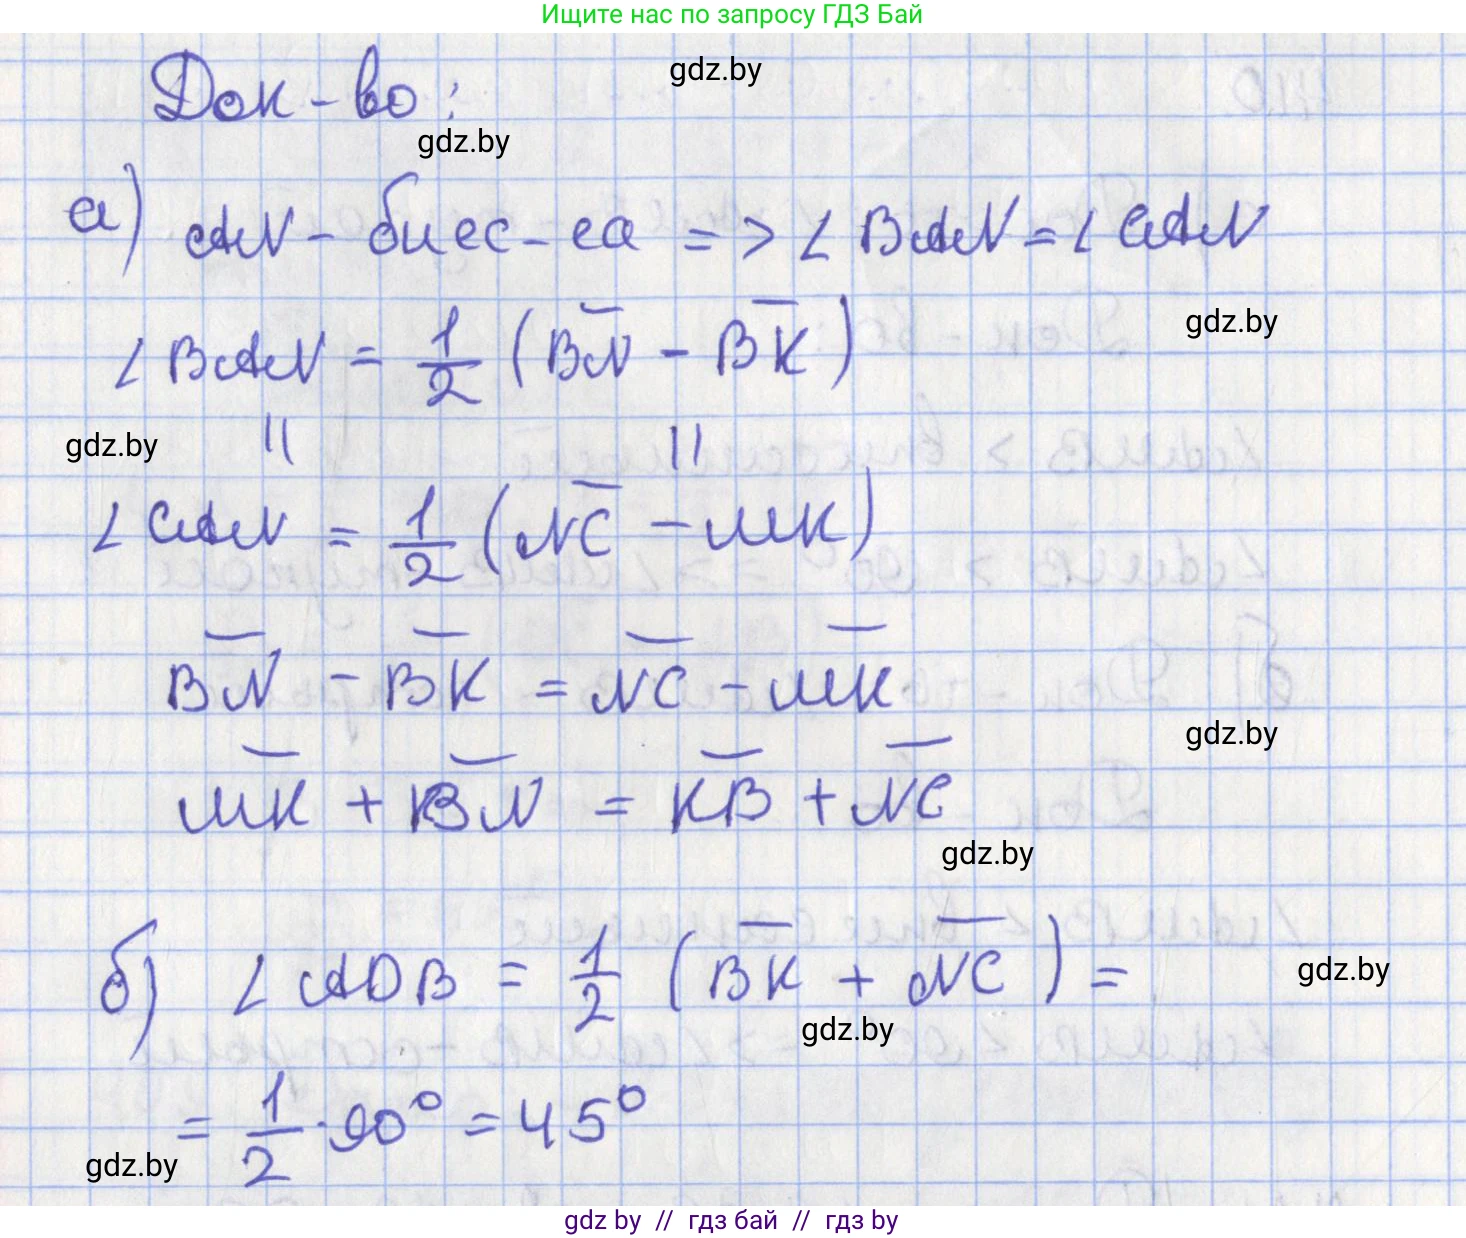 Ищите нас по запросу ГДЗ Бай
Док-во:
gdz.by
gdz.by
а) AN - биес-са => ∠BAN = ∠CAN
gdz.by
∠BAN = 1/2 (BN - BK)
gdz.by
|| ||
∠CAN = 1/2 (NC - MK)
BN - BK = NC - MK
gdz.by
MK + BN = KB + NC
gdz.by
б) ∠ADB = 1/2 (BK + NC) =
gdz.by
gdz.by
= 1/2 · 90° = 45°
gdz.by
gdz by // гдз бай // гдз by